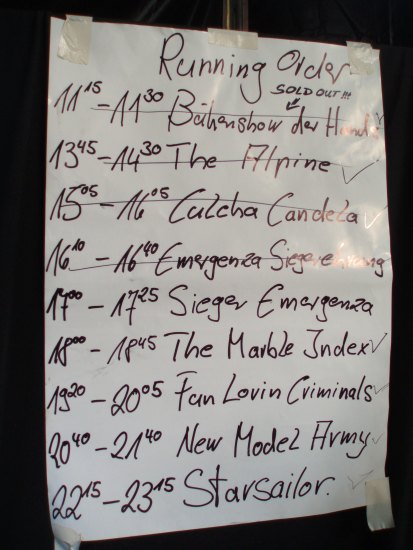 Running Order
SOLD OUT!!!
11 15 - 11 30 Bühenshow der Hunde
13 45 - 14 30 The Alpine
15 05 - 16 05 Culcha Candela
16 10 - 16 40 Emergenza Siegerehrung
17 00 - 17 25 Sieger Emergenza
18 00 - 18 45 The Marble Index
19 20 - 20 05 Fun Lovin Criminals
20 40 - 21 40 New Model Army
22 15 - 23 15 Starsailor.